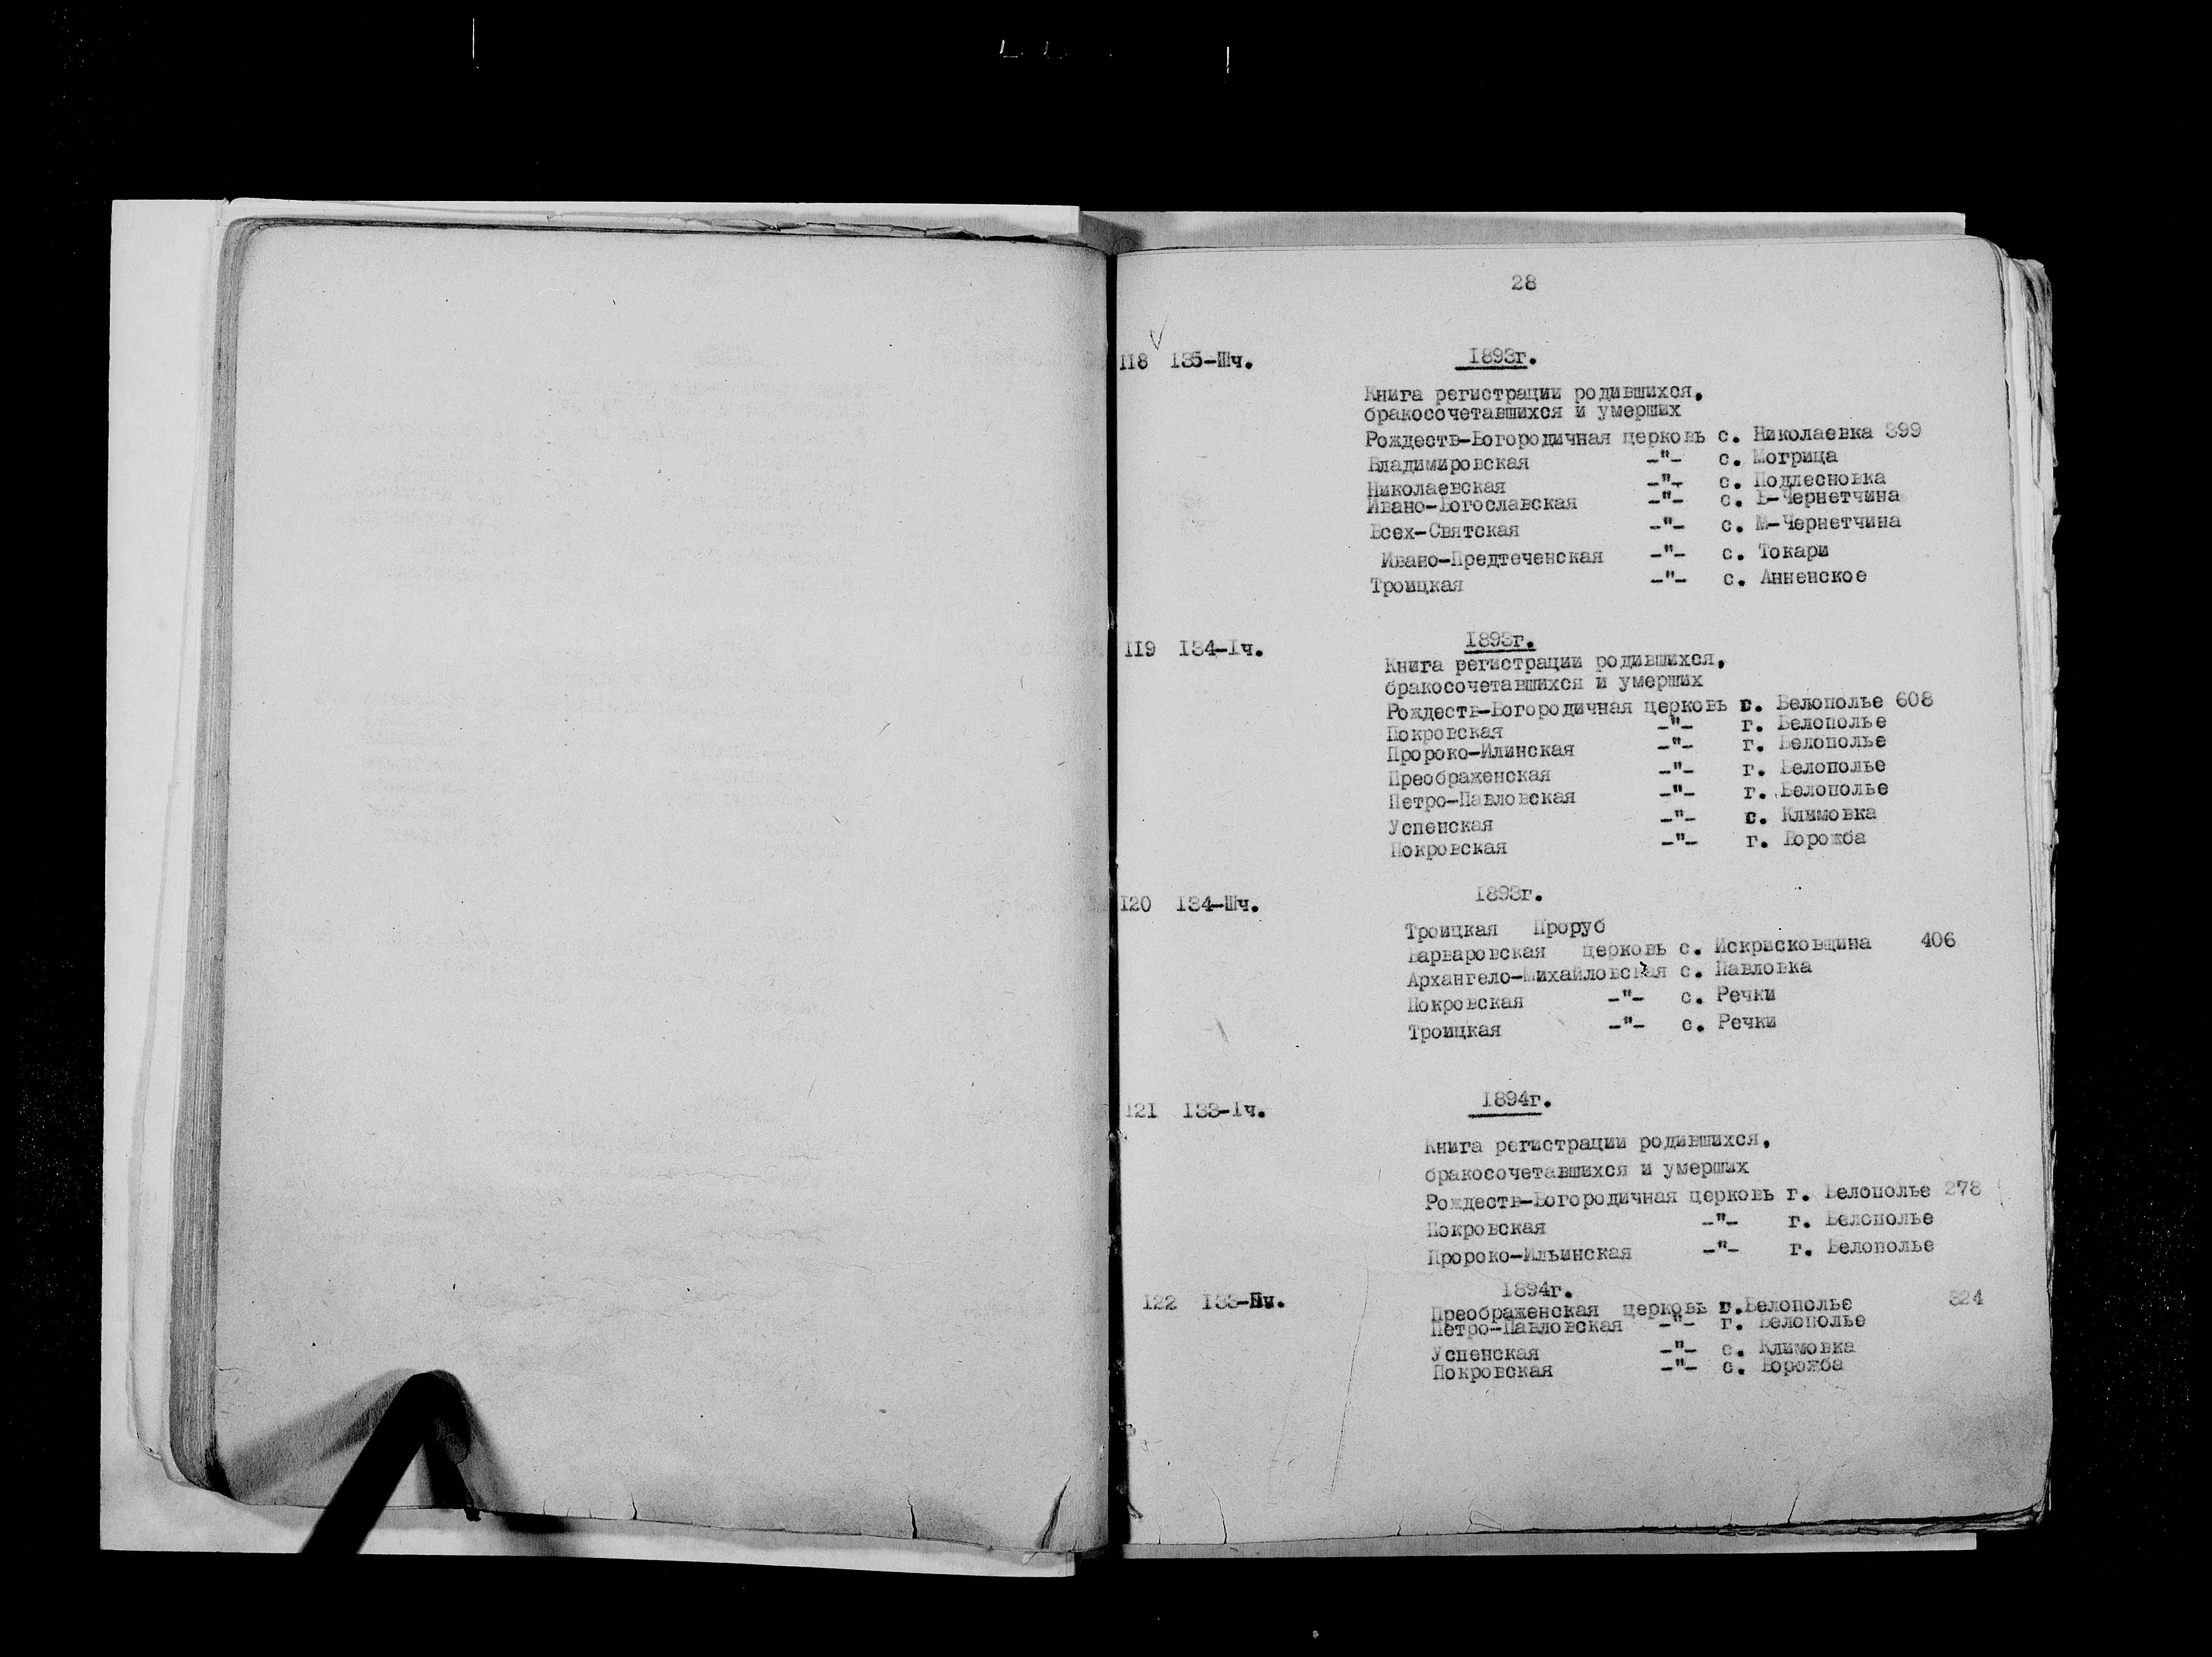 28
118 135-Шч. 1893г.
Книга регистрации родившихся,
бракосочетавшихся и умерших
Рождеств-Богородичная церковь с. Николаевка 399
Владимировская -"- с. Могрица
Николаевская -"- с. Подлесновка
Ивано-Богославская -"- с. Б-Чернетчина
Всех-Святская -"- с. М-Чернетчина
Ивано-Предтеченская -"- с. Токари
Троицкая -"- с. Анненское
119 134-1ч. 1893г.
Книга регистрации родившихся,
бракосочетавшихся и умерших
Рождеств-Богородичная церковь г. Белополье 608
Покровская -"- г. Белополье
Пророко-Илинская -"- г. Белополье
Преображенская -"- г. Белополье
Петро-Павловская -"- г. Белополье
Успенская -"- с. Климовка
Покровская -"- г. Ворожба
120 134-Шч. 1893г.
Троицкая Проруб
Варваровская церковь с. Искрисковщина 406
Архангело-Михайловская с. Павловка
Покровская -"- с. Речки
Троицкая -"- с. Речки
121 133-1ч. 1894г.
Книга регистрации родившихся,
бракосочетавшихся и умерших
Рождеств-Богородичная церковь г. Белополье 278
Покровская -"- г. Белополье
Пророко-Ильинская -"- г. Белополье
1894г.
122
Преображенская церковь г.Белополье 324
Петро-Павловская -"- г. Белополье
Успенская -"- с. Климовка
Покровская -"- с. Ворожба